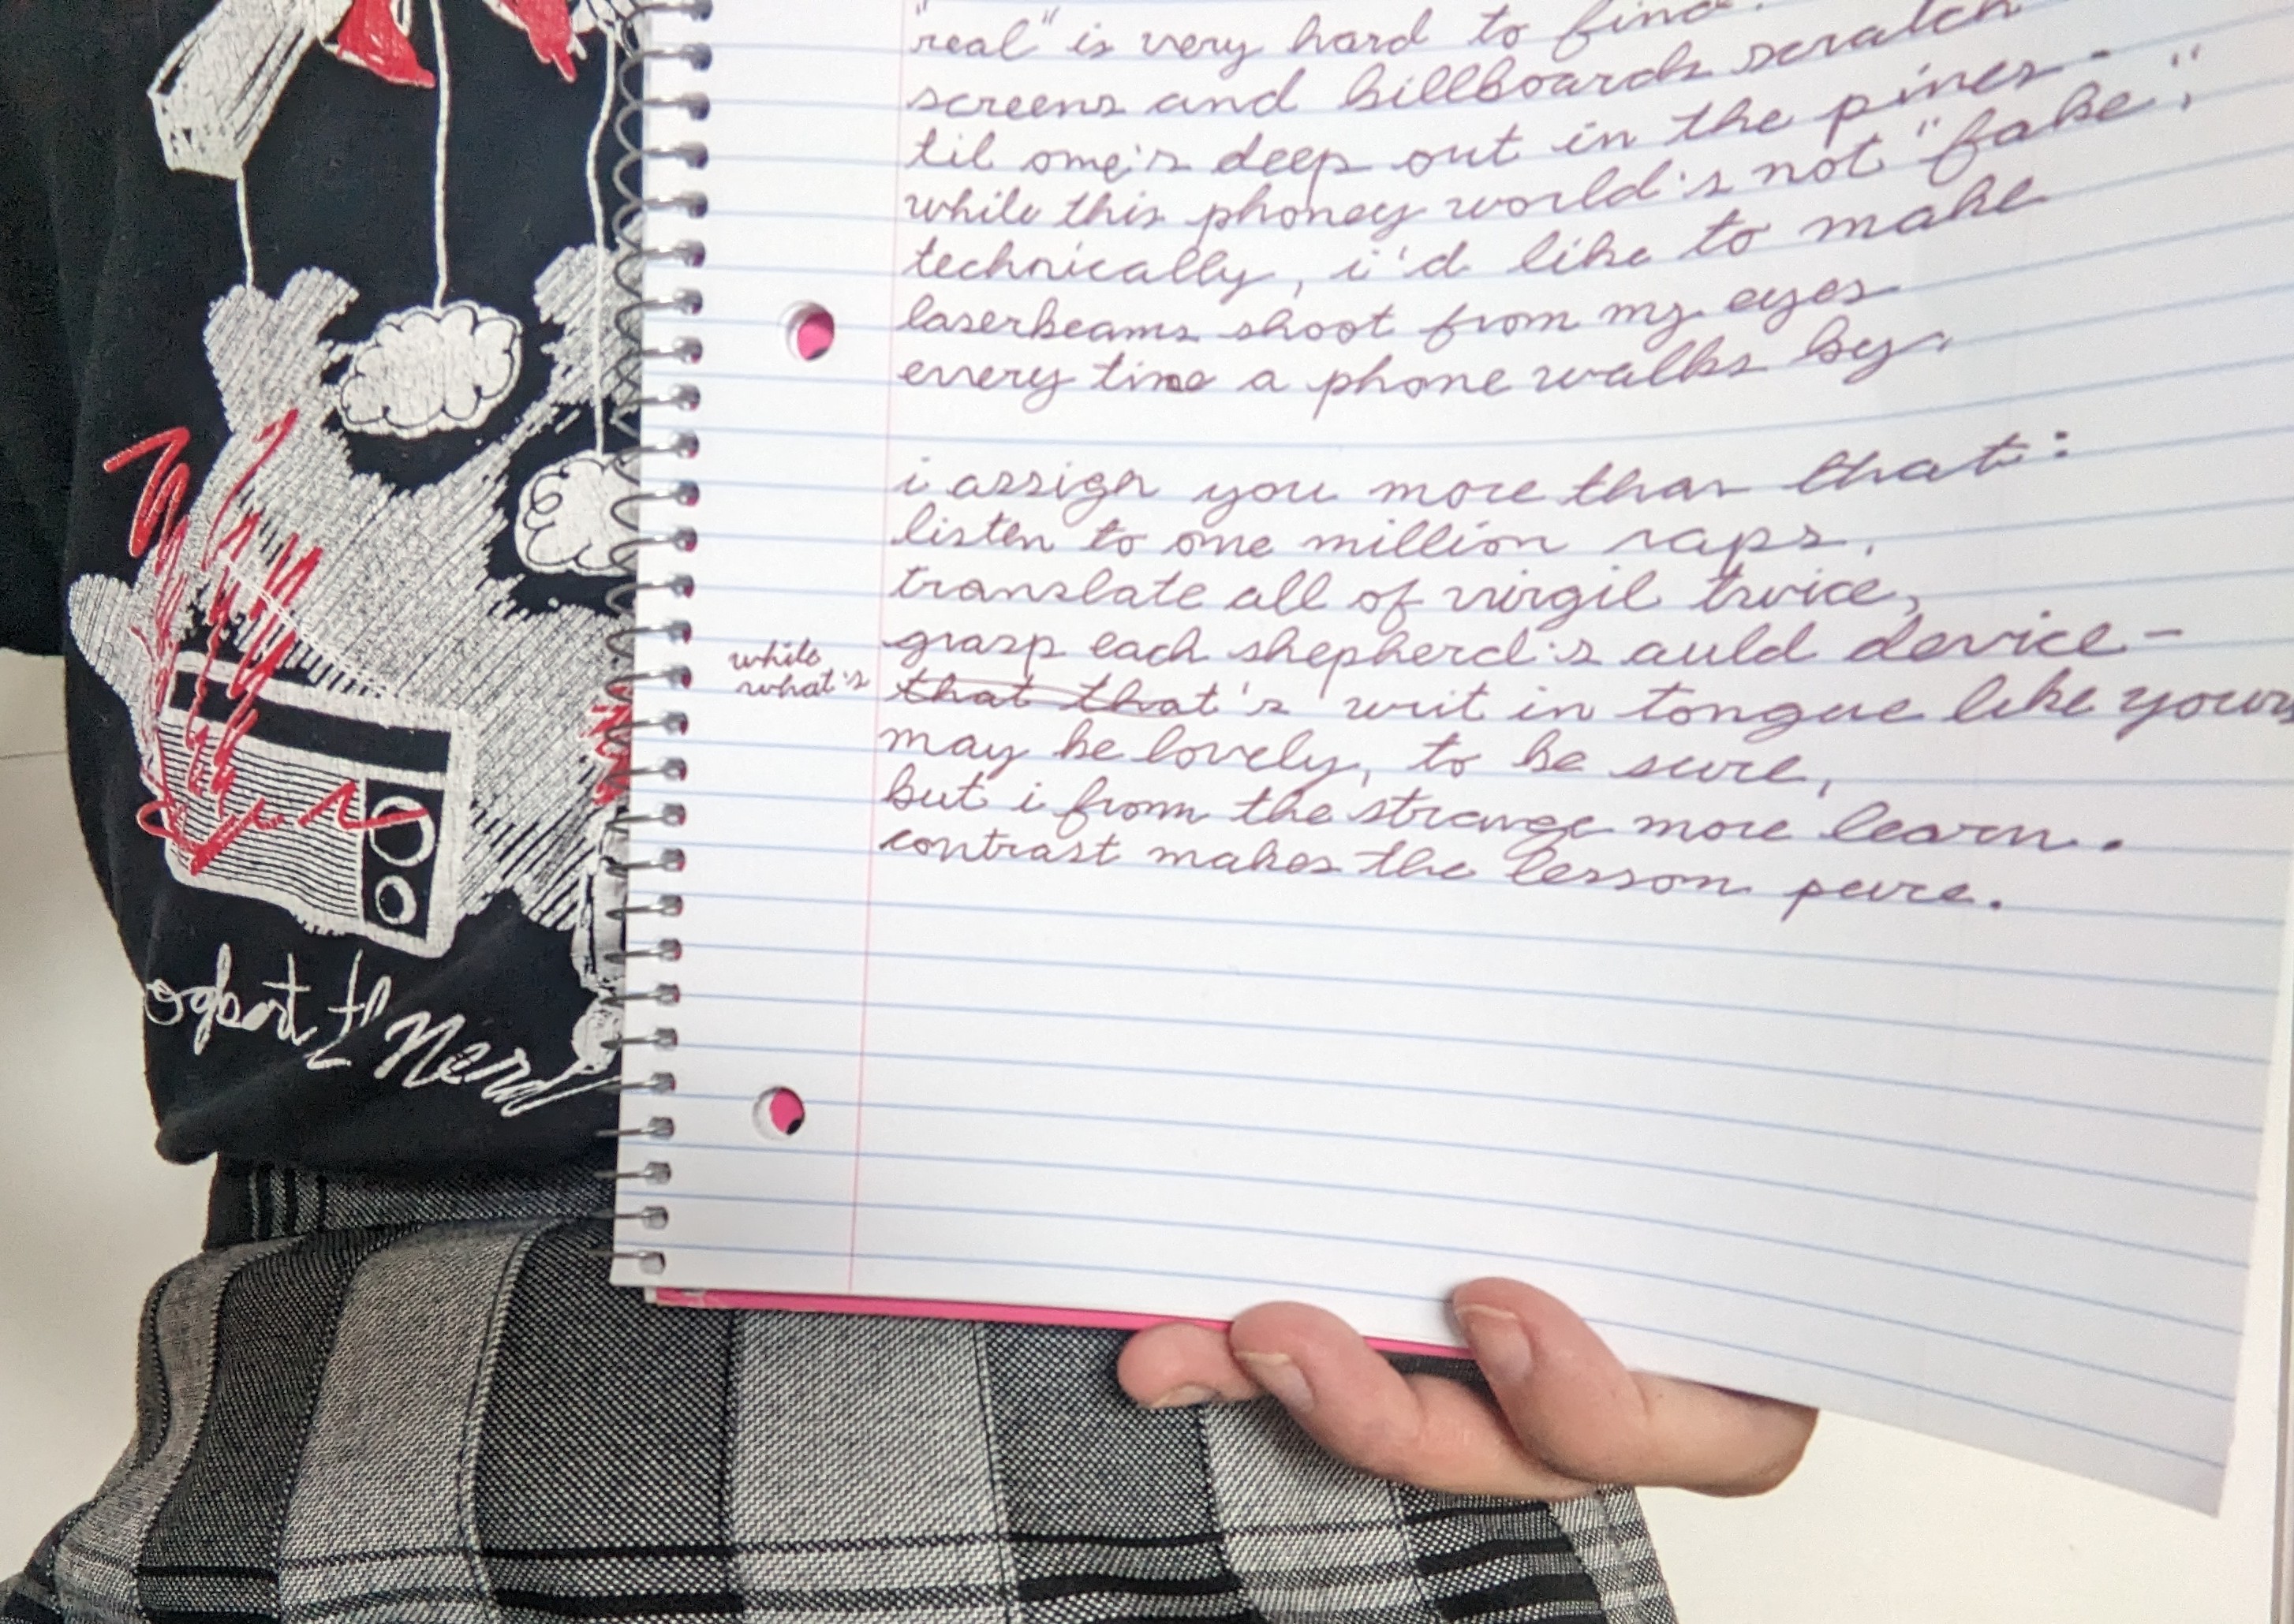 "real" is very hard to find.
screens and billboards scratch
til one's deep out in the pines-
while this phoney world's not "fake",
technically, i'd like to make
laserbeams shoot from my eyes
every time a phone walks by.
i assign you more than that:
listen to one million raps,
translate all of virgil twice,
grasp each shepherd's auld device-
while
what's
that that's writ in tongue like yours
may be lovely, to be sure,
but i from the strange more learn.
contrast makes the lesson pure.
ogbert th Nerd